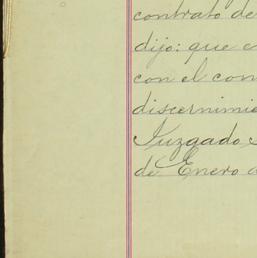 contrato de
dijo: que e
con el con
discernimie
Juzgado
de Enero